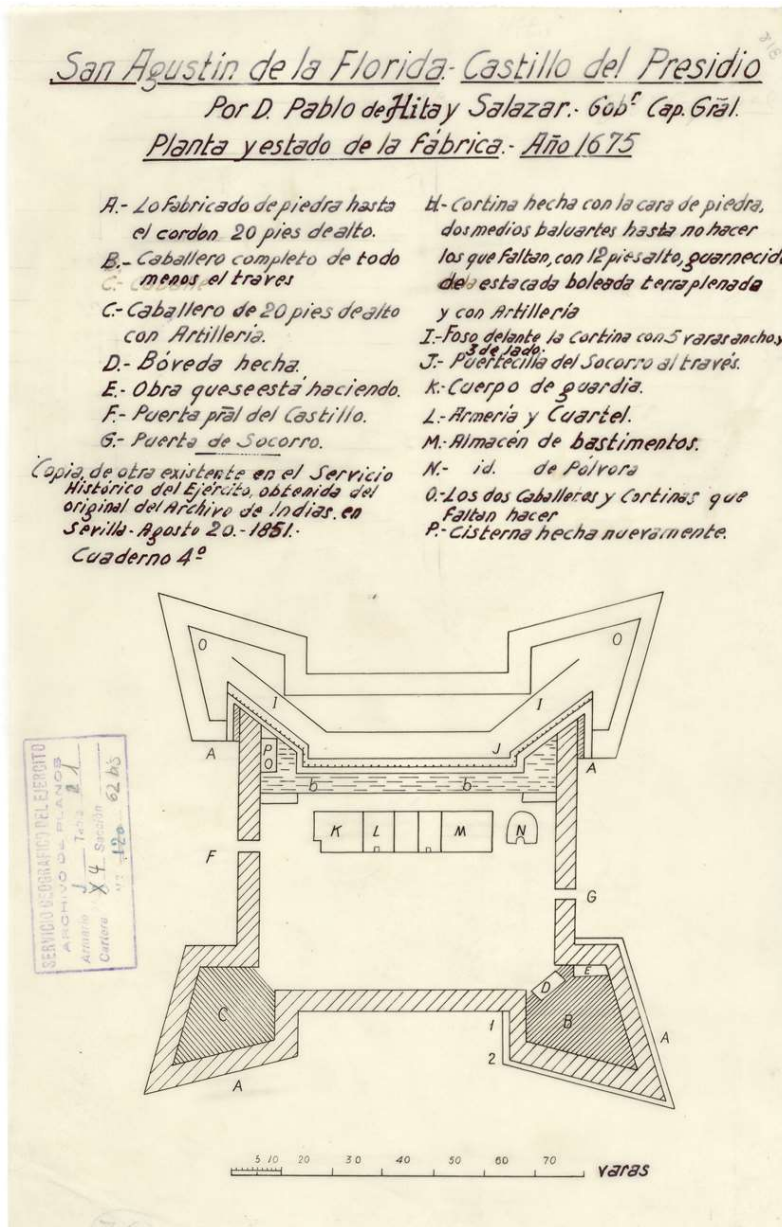 San Agustín de la Florida.- Castillo del Presidio
Por D. Pablo de Hita y Salazar.- Gobr Cap. Grãl.
Planta y estado de la fábrica.- Año 1675
A.- Lo fabricado de piedra hasta
el cordon 20 pies de alto.
B.- Caballero completo de todo
menos el través
C.- Caballero de 20 pies de alto
con Artillería.
D.- Bóveda hecha.
E.- Obra que se está haciendo.
F.- Puerta prãl del Castillo.
G.- Puerta de Socorro.
Copia de otra existente en el Servicio
Histórico del Ejército, obtenida del
original del Archivo de Indias, en
Sevilla.- Agosto 20.- 1851.-
Cuaderno 4º
H.- Cortina hecha con la cara de piedra,
dos medios baluartes hasta no hacer
los que faltan, con 12 pies alto, guarnecid
de estacada boleada terraplenada
y con Artillería
I.- Foso delante la Cortina con 5 varas ancho y
3 de lado.
J.- Puertecilla del Socorro al través.
K.- Cuerpo de guardia.
L.- Armería y Cuartel.
M.- Almacén de bastimentos.
N.- id. de Pólvora
O.- Los dos Caballeros y Cortinas que
faltan hacer
P.- Cisterna hecha nuevamente.
O O
I I
A P J A
O
b b
K L M N
F
G
C D E
B
A
1
2
A
SERVICIO GEOGRÁFICO DEL EJERCITO
ARCHIVO DE PLANOS
Armario J Tabla 21
Cartera X 4 Sección 62 bis
Nº 120
5 10 20 30 40 50 60 70 varas